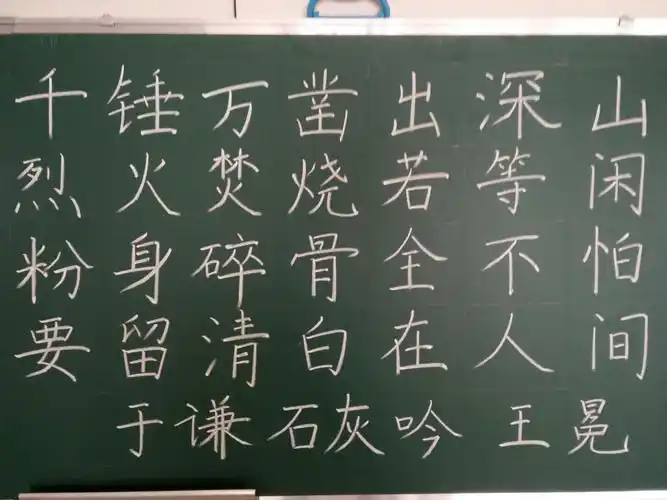 千锤万凿出深山
烈火焚烧若等闲
粉身碎骨全不怕
要留清白在人间
于谦石灰吟 王冕